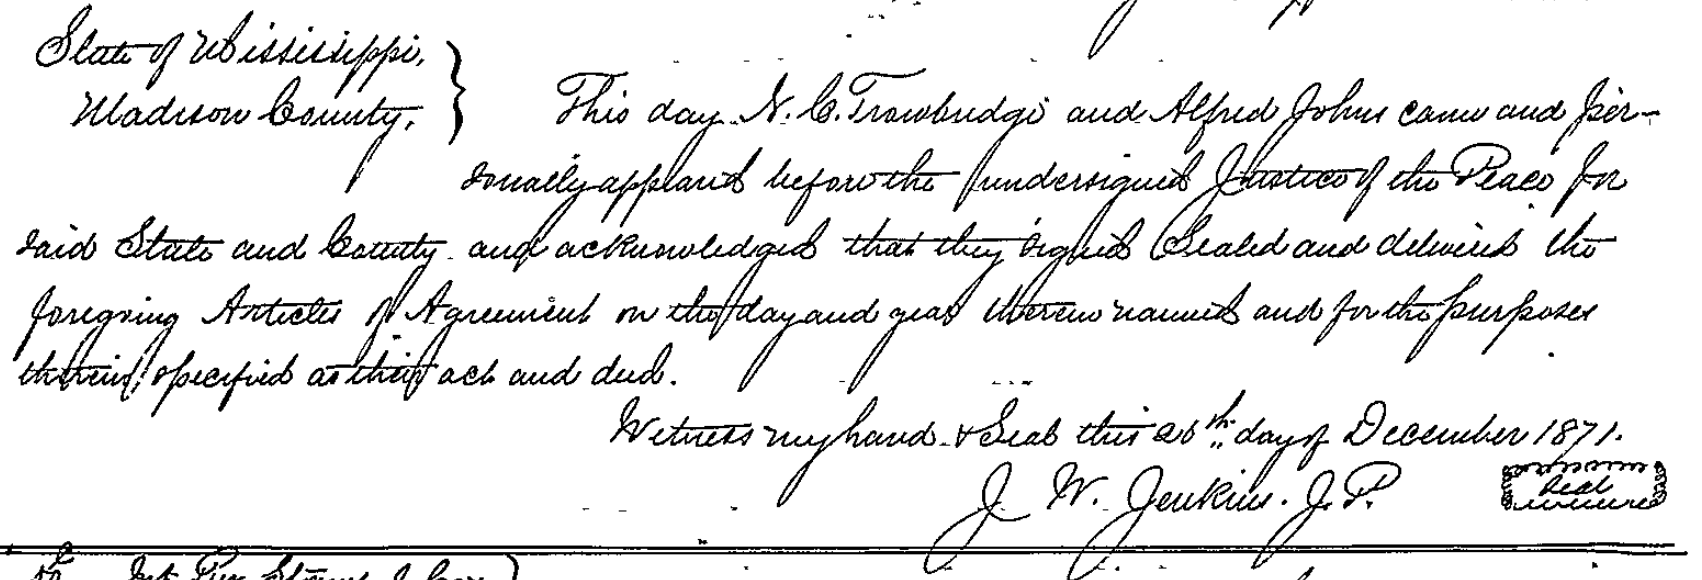 State of Mississippi,
Madison County,
This day N. C. Trowbridge and Alfred Johns came and per-
sonally appeared before the undersigned Justice of the Peace for
said State and County and acknowledged that they signed Sealed and delivered the
foregoing Articles of Agreement on the day and year therein named and for the purposes
therein specified as their act and deed.
Witness my hand & Seal this 26th day of December 1871.
J. W. Jenkins. J. P.
Seal